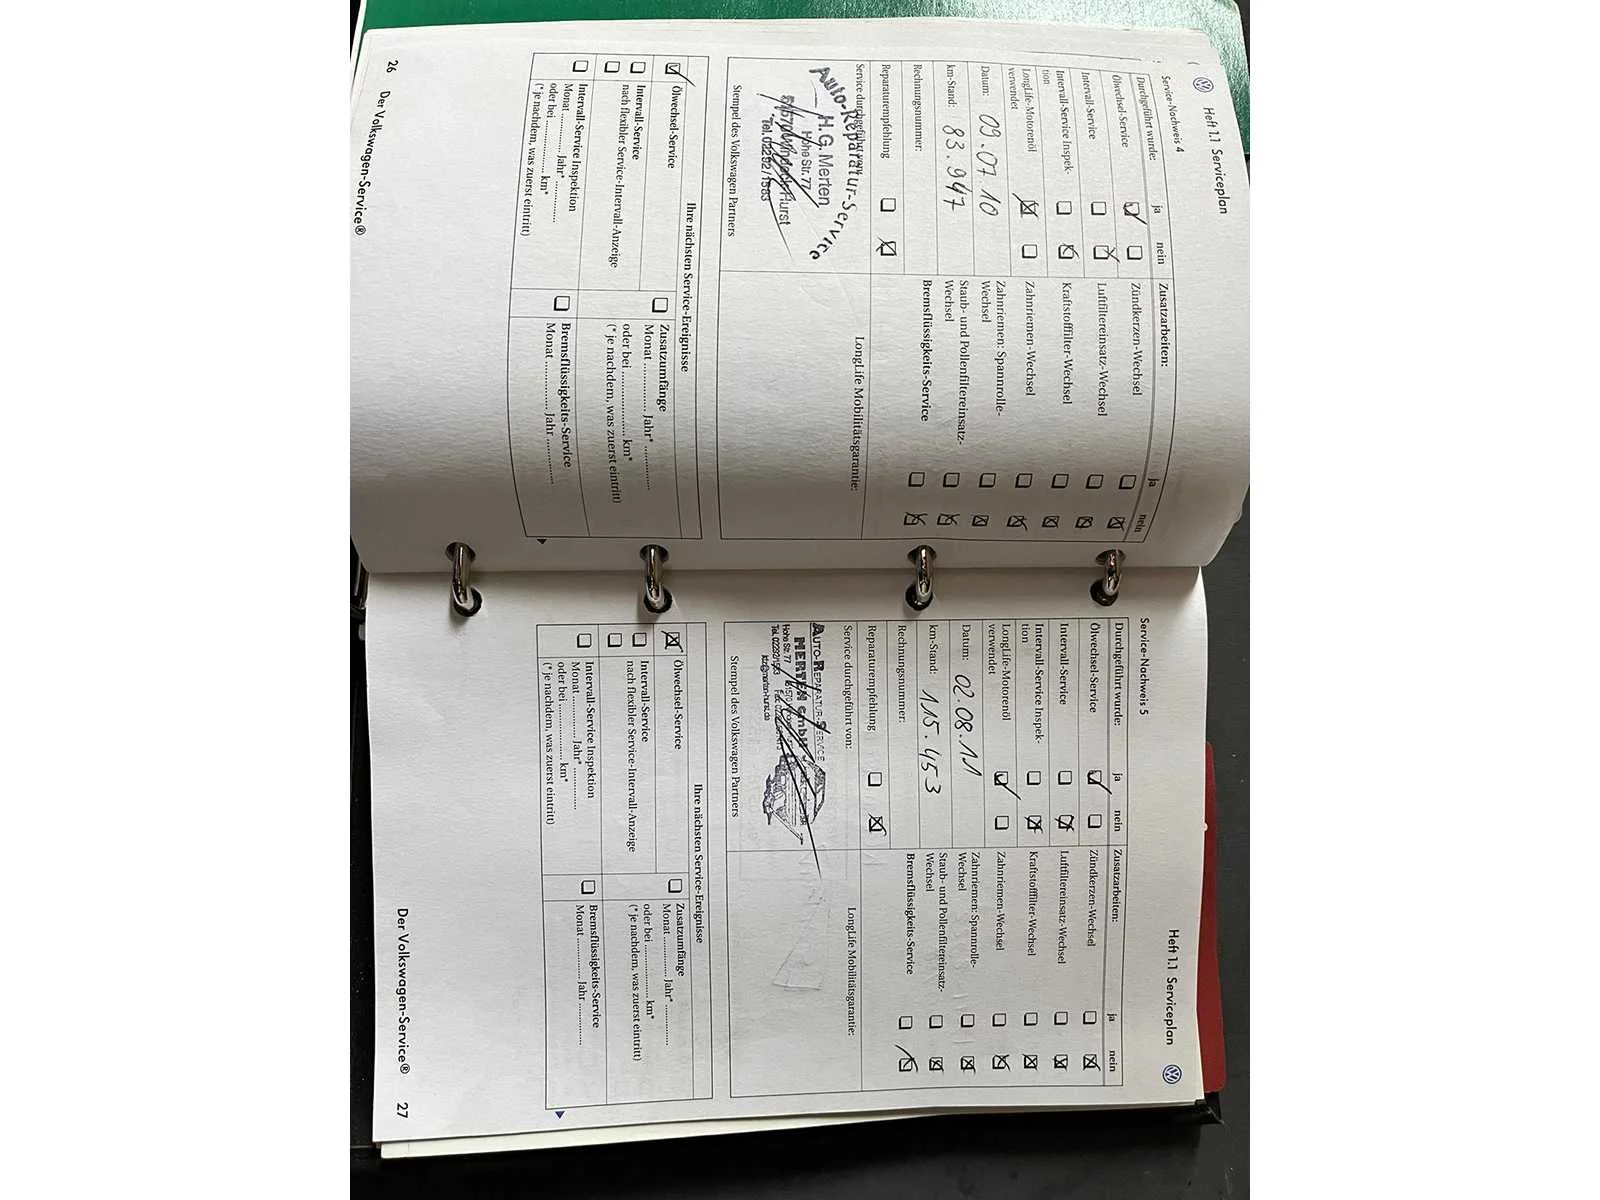 Heft 1.1 Serviceplan
Service-Nachweis 4
Durchgeführt wurde: ja nein
Ölwechsel-Service
Intervall-Service
Intervall-Service Inspek-
tion
LongLife-Motorenöl
verwendet
Datum: 09.07 10
km-Stand: 83.947
Rechnungsnummer:
Reparaturempfehlung
Service durchgeführt von:
Auto-Reparatur-Service
H.G. Merten
Hohe Str. 77
Stempel des Volkswagen Partners
Zusatzarbeiten: ja nein
Zündkerzen-Wechsel
Luftfiltereinsatz-Wechsel
Kraftstofffilter-Wechsel
Zahnriemen-Wechsel
Zahnriemen: Spannrolle-
Wechsel
Staub- und Pollenfiltereinsatz-
Wechsel
Bremsflüssigkeits-Service
LongLife Mobilitätsgarantie:
Ihre nächsten Service-Ereignisse
Ölwechsel-Service
Intervall-Service
nach flexibler Service-Intervall-Anzeige
Intervall-Service Inspektion
Monat ............ Jahr* ............
oder bei .................. km*
(*je nachdem, was zuerst eintritt)
Zusatzumfänge
Monat ............ Jahr* ............
oder bei .................. km*
(*je nachdem, was zuerst eintritt)
Bremsflüssigkeits-Service
Monat ............ Jahr ............
26 Der Volkswagen-Service®
Heft 1.1 Serviceplan
Service-Nachweis 5
Durchgeführt wurde: ja nein
Ölwechsel-Service
Intervall-Service
Intervall-Service Inspek-
tion
LongLife-Motorenöl
verwendet
Datum: 02.08.11
km-Stand: 115.453
Rechnungsnummer:
Reparaturempfehlung
Service durchgeführt von:
AUTO-REPARATUR-SERVICE
MERTEN GmbH
Hohe Str. 77
Stempel des Volkswagen Partners
Zusatzarbeiten: ja nein
Zündkerzen-Wechsel
Luftfiltereinsatz-Wechsel
Kraftstofffilter-Wechsel
Zahnriemen-Wechsel
Zahnriemen: Spannrolle-
Wechsel
Staub- und Pollenfiltereinsatz-
Wechsel
Bremsflüssigkeits-Service
LongLife Mobilitätsgarantie:
Ihre nächsten Service-Ereignisse
Ölwechsel-Service
Intervall-Service
nach flexibler Service-Intervall-Anzeige
Intervall-Service Inspektion
Monat ............ Jahr* ............
oder bei .................. km*
(*je nachdem, was zuerst eintritt)
Zusatzumfänge
Monat ............ Jahr* ............
oder bei .................. km*
(*je nachdem, was zuerst eintritt)
Bremsflüssigkeits-Service
Monat ............ Jahr ............
Der Volkswagen-Service® 27